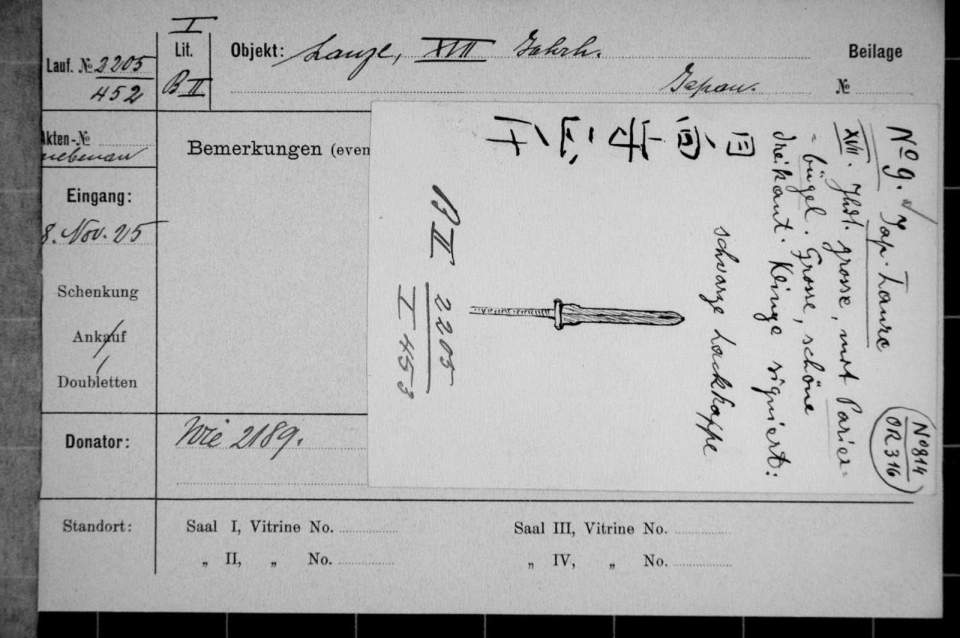 I
Lauf. № 2205
452
Lit.
B II
Objekt: Lanze, XVII Jahrh.
Japan.
Beilage
№
Akten-№
Bemerkungen (even
Eingang:
8. Nov. 25
Schenkung
Ankauf
Doubletten
Donator: Wie 2189.
Standort:
Saal I, Vitrine No.
Saal III, Vitrine No.
„ II, „ No.
„ IV, „ No.
No 9. Jap. Lanze
XVII. Jhdt. grosse, mit Parier-
- bügel. Grosse, schöne
dreikant. Klinge signiert:
日向守
schwarze Lackkappe
B II 2205
I 453
No 814
OR 316